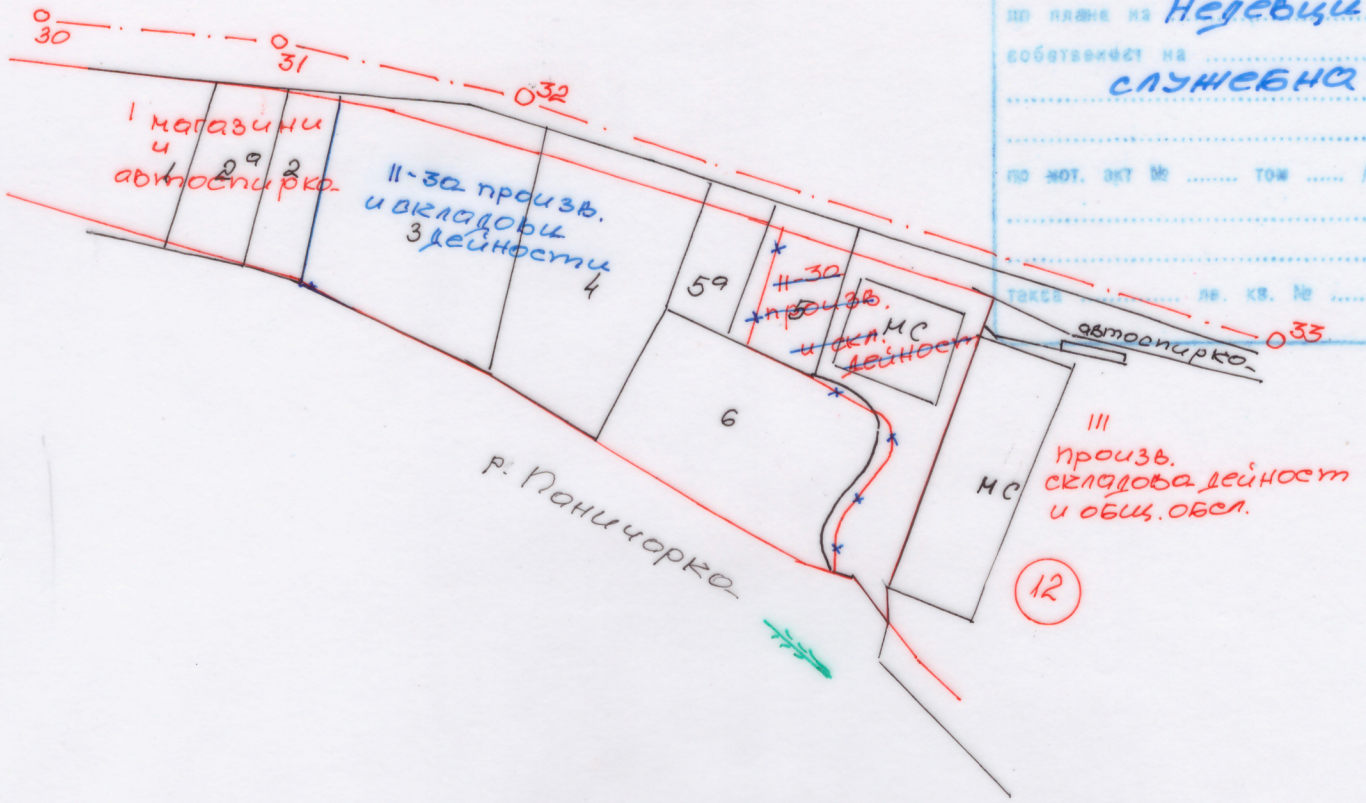 по плана на Нелевци
собственост на
СЛУЖЕБНА
по нот. акт № ........ том ......
такса ............ лв. кв. №
30
31
32
33
I магазини
и
автоспирка
1
2а
2
II-за произв.
и складови
дейности
3
4
5а
5
II-за
произв.
и скл.
дейност
МС
автоспирка
6
МС
III
произв.
складова дейност
и общ. обсл.
12
р. Паничорка